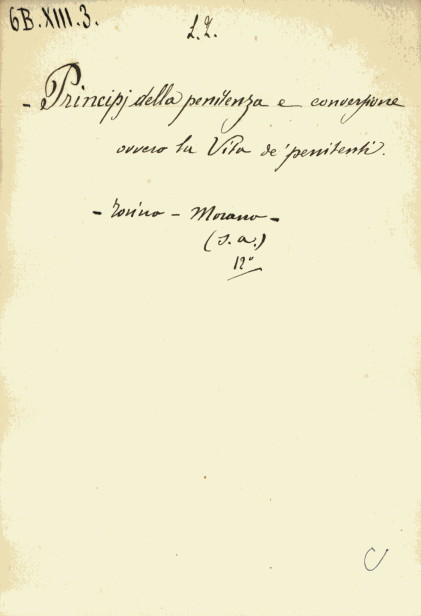 6B.XIII.3.
L.L.
- Principj della penitenza e conversione
ovvero la Vita de' penitenti.
- Torino - Morano -
(s. a.)
12°
C